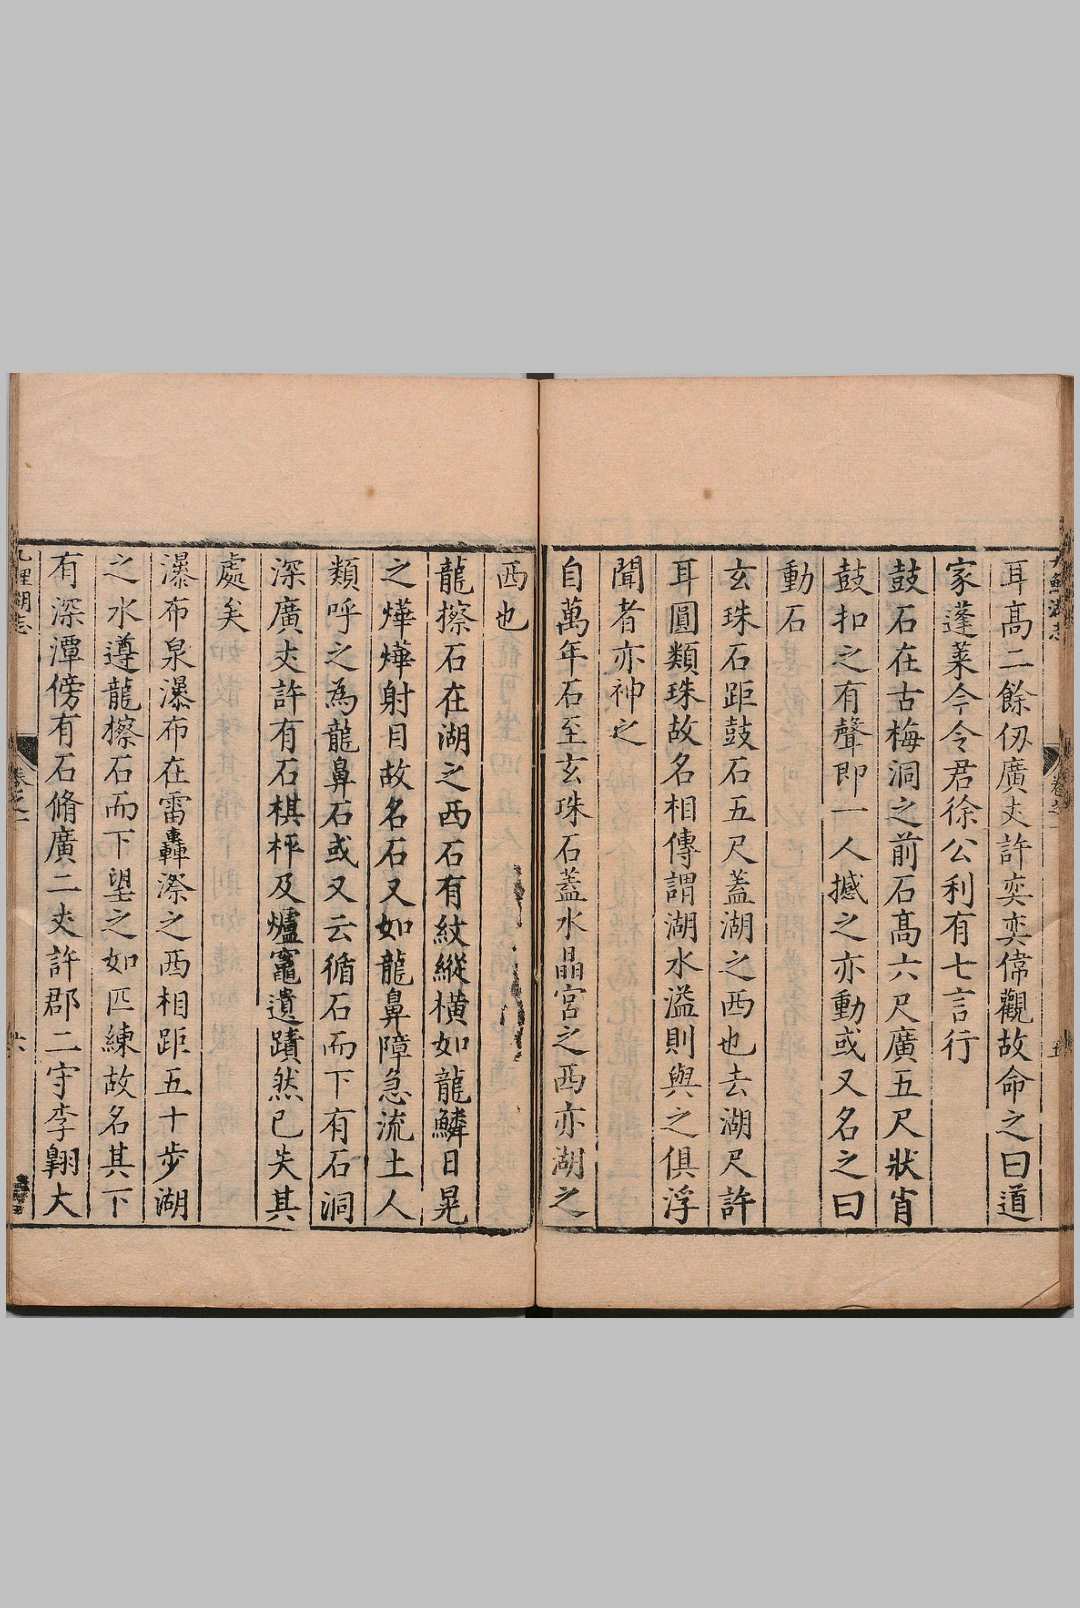 耳高二餘仭廣丈許奕奕偉觀故命之曰道
家蓬萊今令君徐公利有七言行
鼓石在古梅洞之前石高六尺廣五尺狀肖
鼓扣之有聲即一人撼之亦動或又名之曰
動石
玄珠石距鼓石五尺蓋湖之西也去湖尺許
耳圓類珠故名相傳謂湖水溢則與之俱浮
聞者亦神之
自萬年石至玄珠石蓋水晶宮之西亦湖之
西也
龍擦石在湖之西石有紋縱橫如龍鱗日晃
之燁燁射目故名石又如龍鼻障急流土人
類呼之為龍鼻石或又云循石而下有石洞
深廣丈許有石棋枰及爐竈遺蹟然已失其
處矣
瀑布泉瀑布在雷轟漈之西相距五十步湖
之水遵龍擦石而下望之如匹練故名其下
有深潭傍有石脩廣二丈許郡二守李翺大
九鯉湖志
卷之一
六